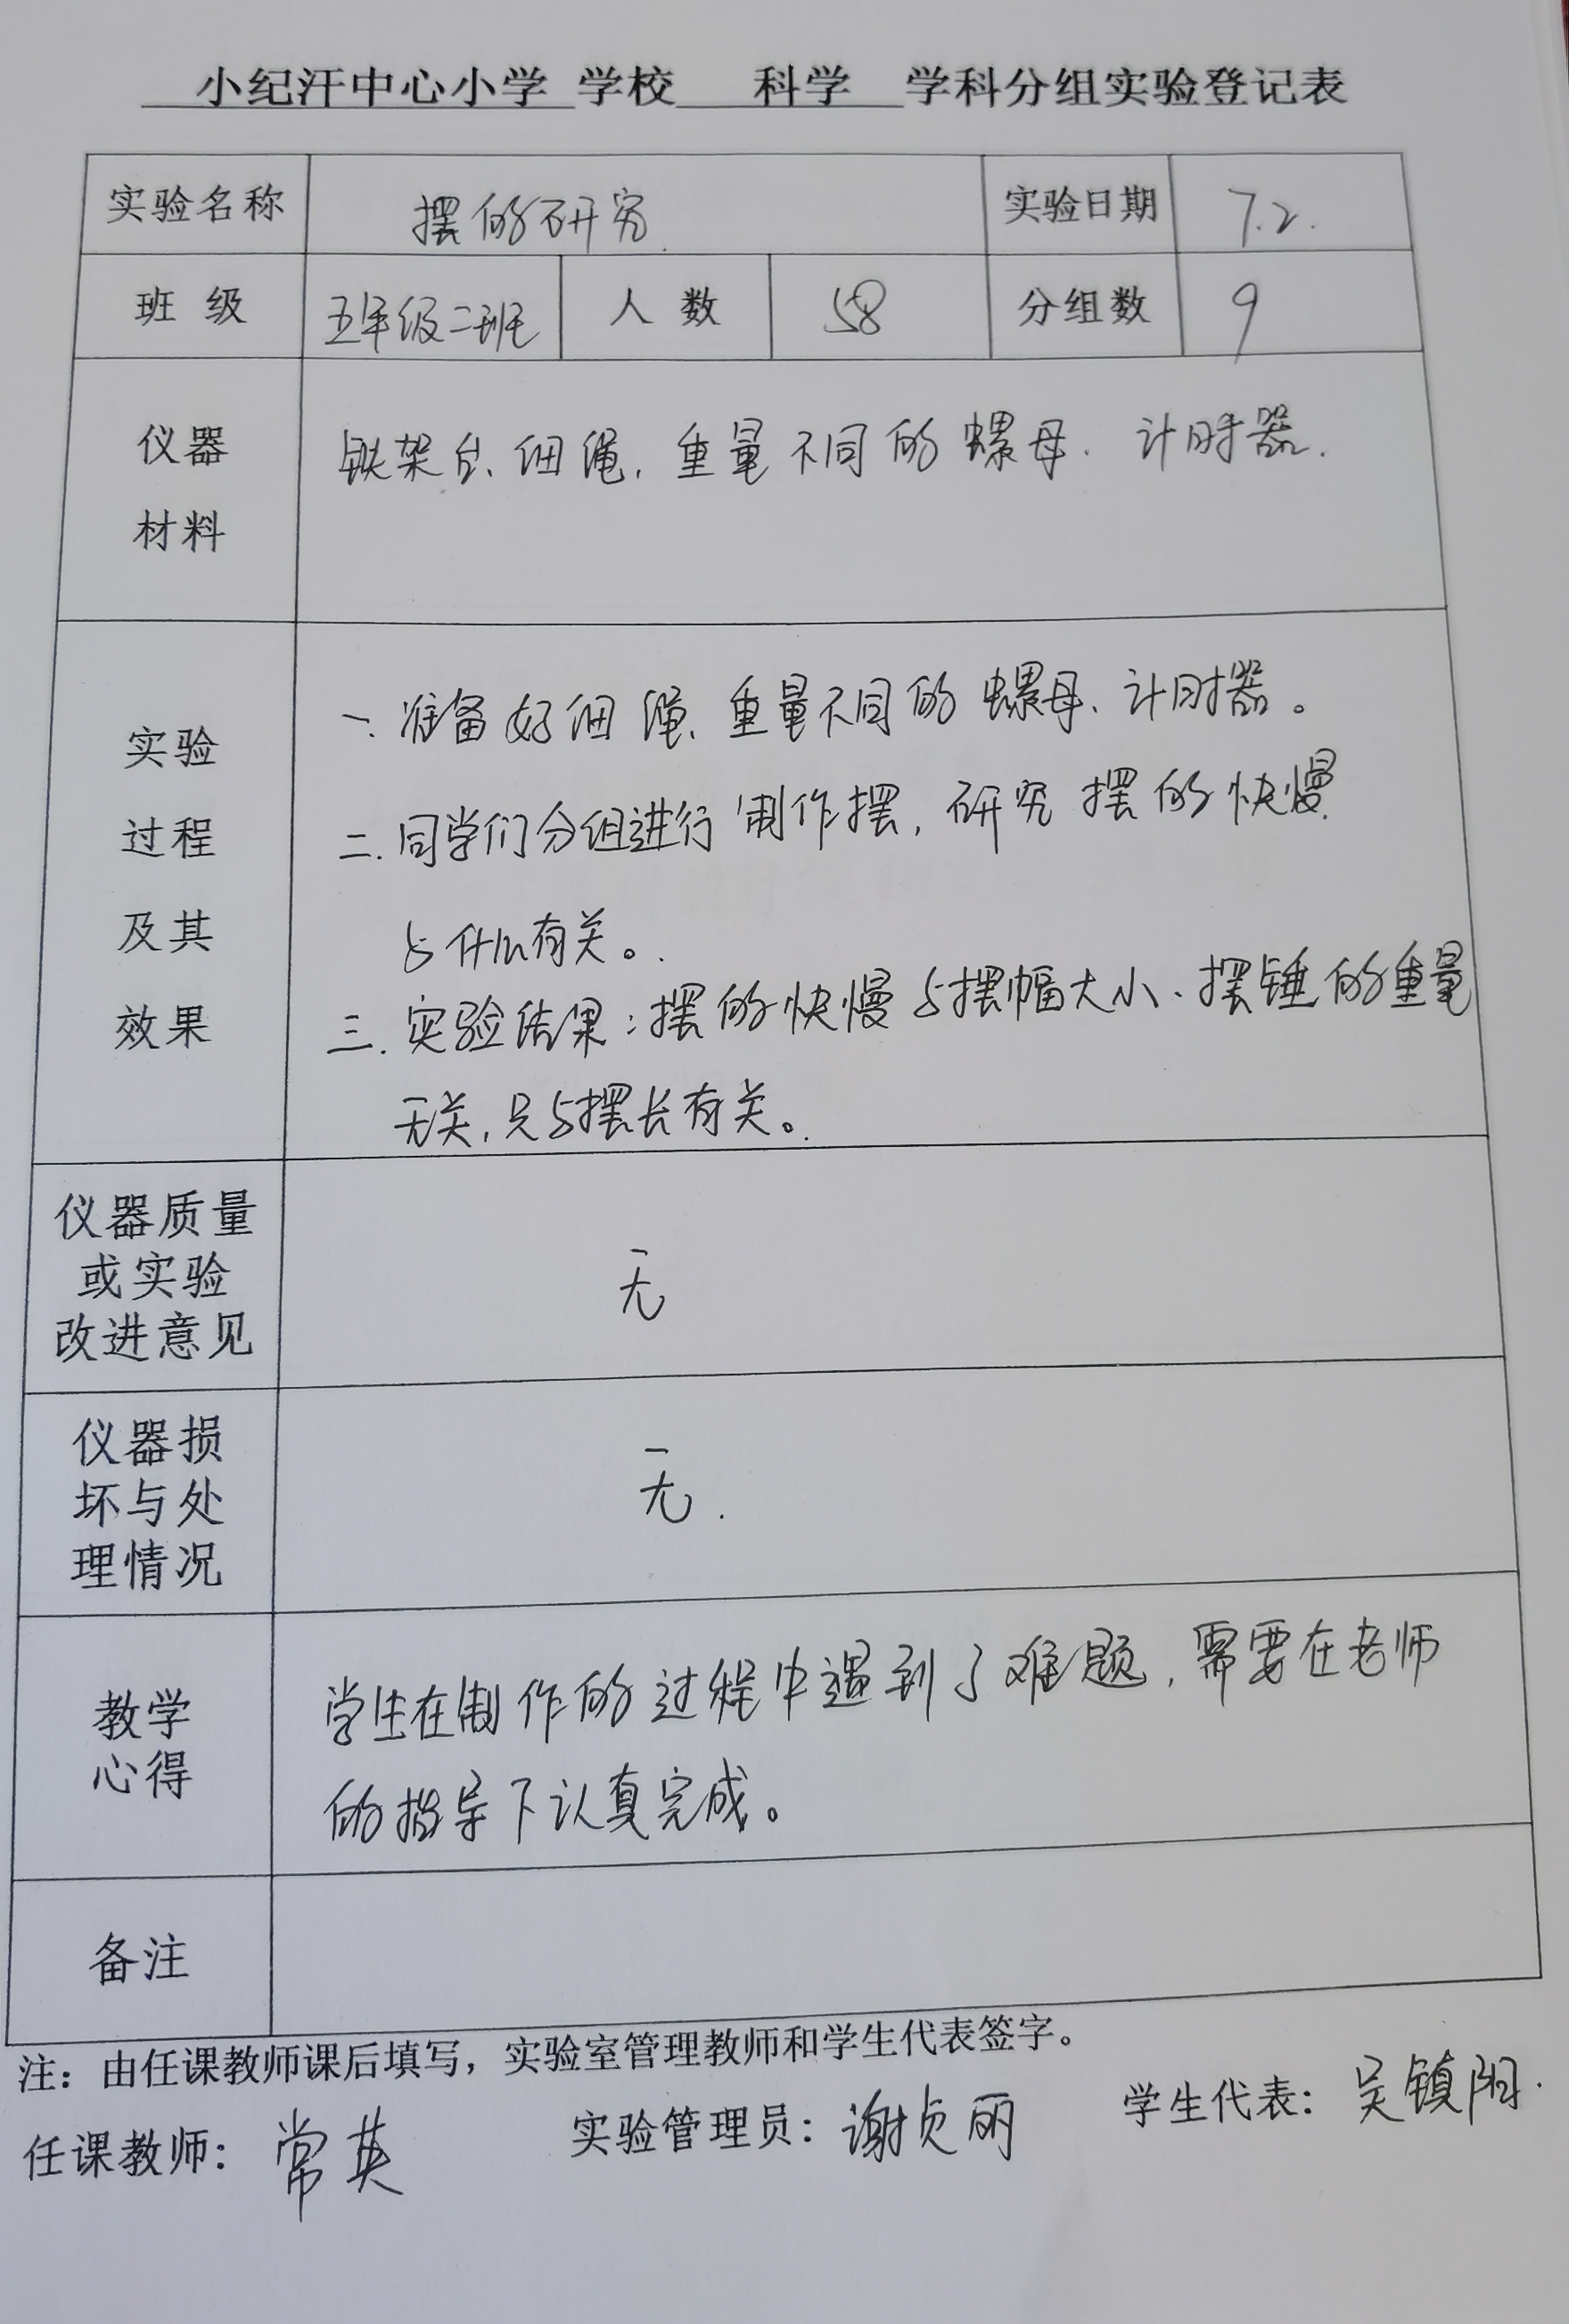 小纪汗中心小学 学校 科学 学科分组实验登记表
实验名称 摆的研究. 实验日期 7.2.
班 级 五年级二班 人 数 58 分组数 9
仪器
材料
铁架台、细绳,重量不同的螺母. 计时器.
实验
过程
及其
效果
一、准备好细绳、重量不同的螺母、计时器。
二.同学们分组进行制作摆,研究摆的快慢
与什么有关。
三.实验结果:摆的快慢与摆幅大小、摆锤的重量
无关,只与摆长有关。
仪器质量
或实验
改进意见
无
仪器损
坏与处
理情况
无.
教学
心得
学生在制作的过程中遇到了难题,需要在老师
的指导下认真完成。
备注
注:由任课教师课后填写,实验室管理教师和学生代表签字。
任课教师:常英 实验管理员:谢贞丽 学生代表:吴镇阳.